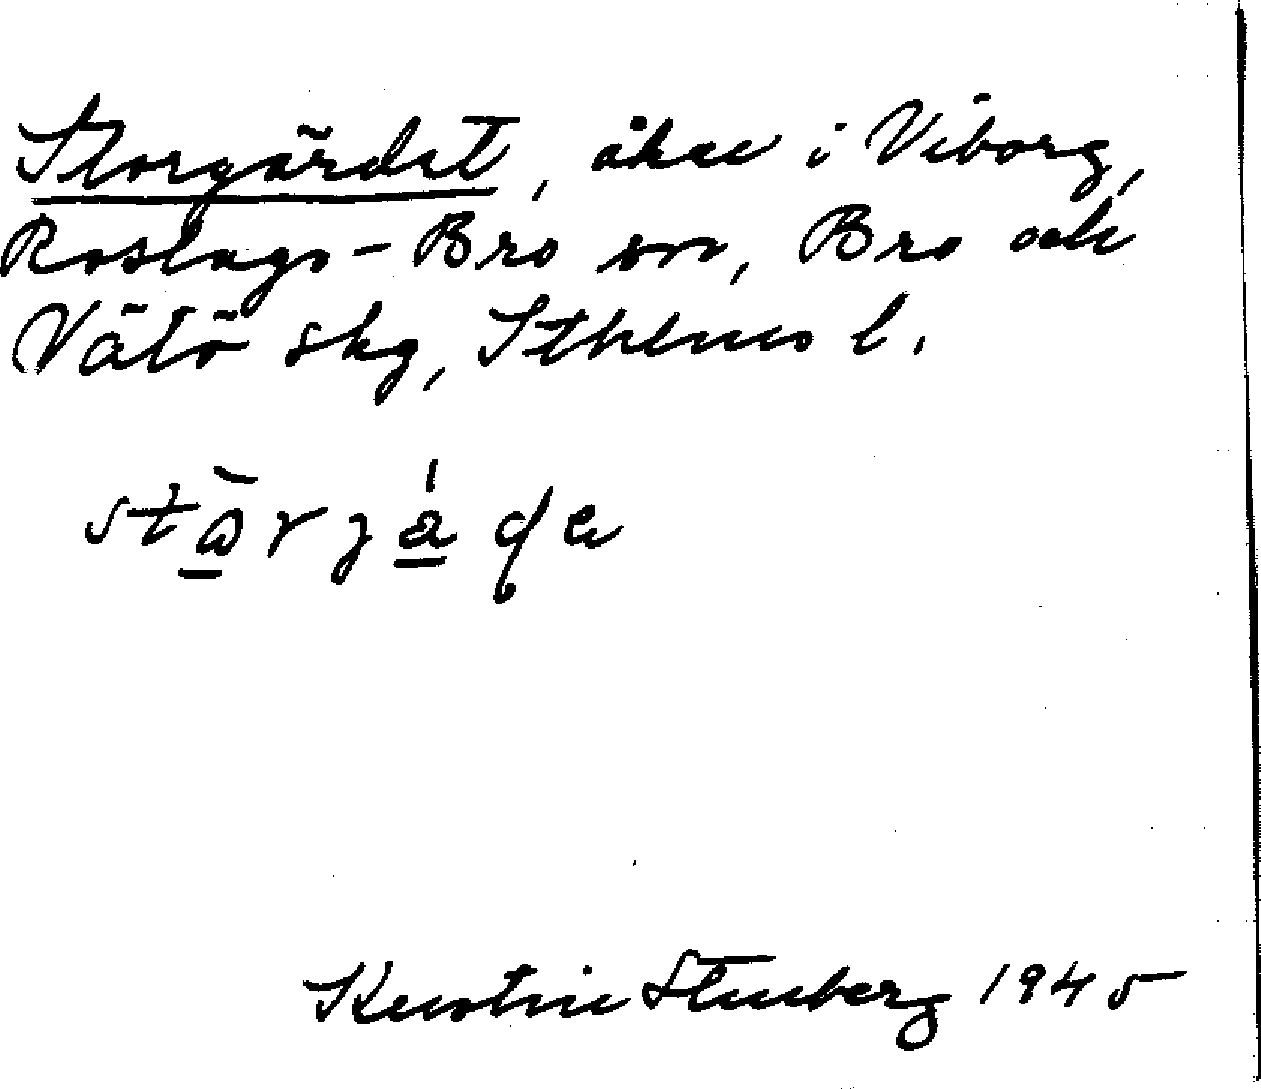 Storgärdet, åker i Viborg,
Roslags-Bro sn, Bro och
Vätö skg, Sthlms l.
Kerstin Stenberg 1945